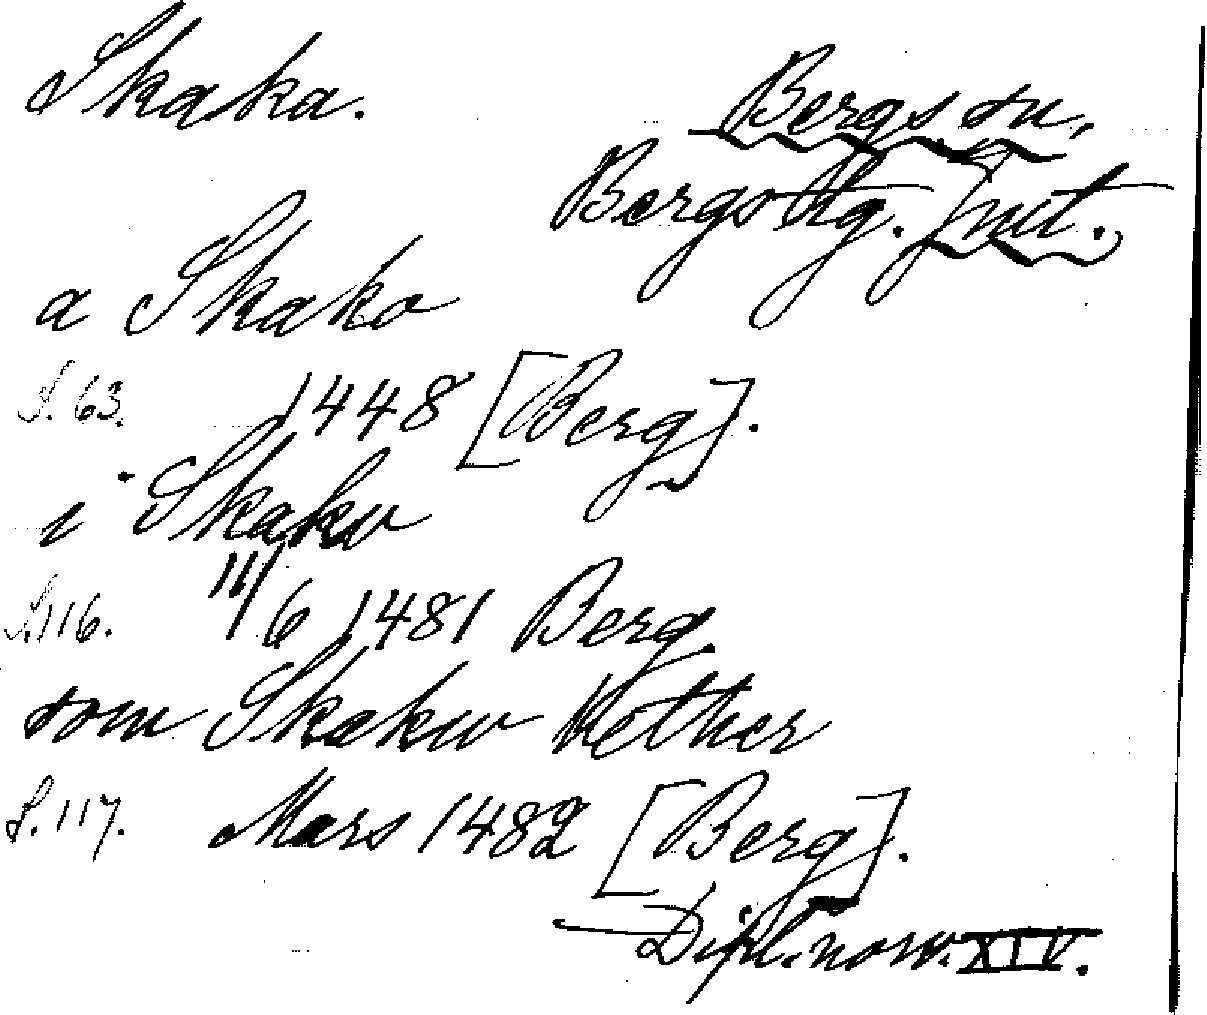 Skaka.
Bergs sn,
Bergs tlg. Jmt.,
a Skako
S. 63. 1448 [Berg].
i Skaku
S. 116. 11/6 1481 Berg
som Skakw Kether
S. 117. Mars 1482 [Berg].
Dipl. norv. XIV.